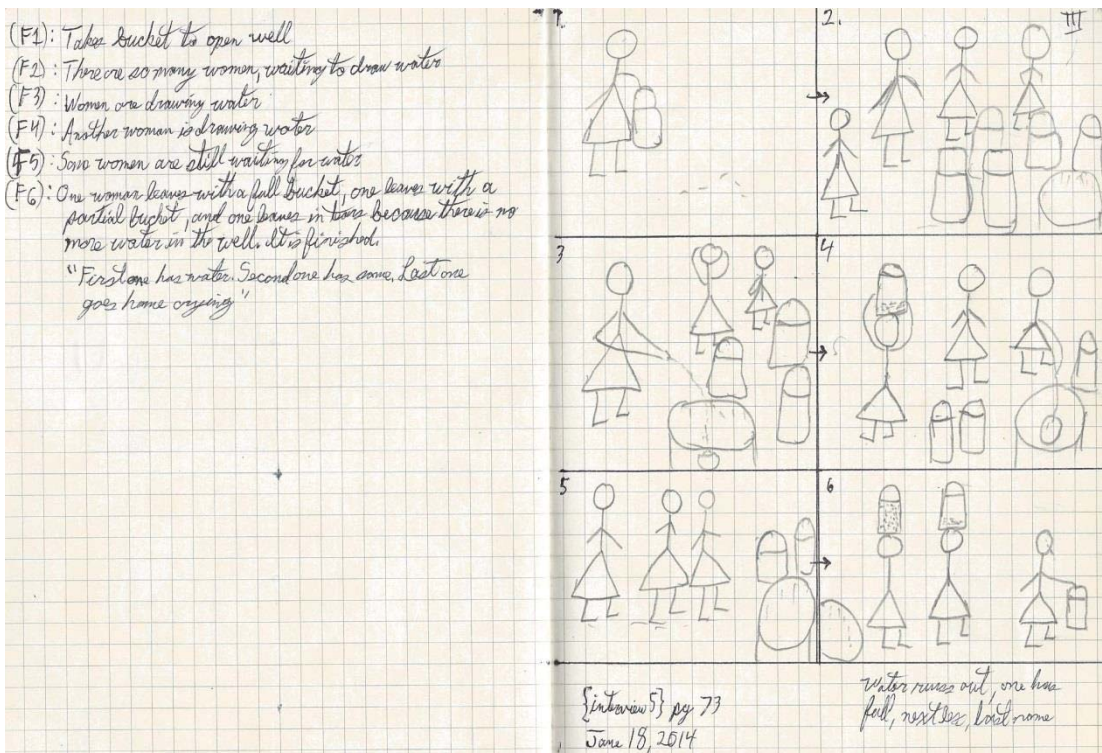 (F1): Takes bucket to open well
(F2): There are so many women, waiting to draw water
(F3): Women are drawing water
(F4): Another woman is drawing water
(F5): Some women are still waiting for water
(F6): One woman leaves with a full bucket, one leaves with a
partial bucket, and one leaves in tears because there is no
more water in the well. It is finished.
"First one has water. Second one has some. Last one
goes home crying"
1.
2.
III
3
4
5
6
{interview 5} pg 73
June 18, 2014
Water runs out, one has
full, next less, last none